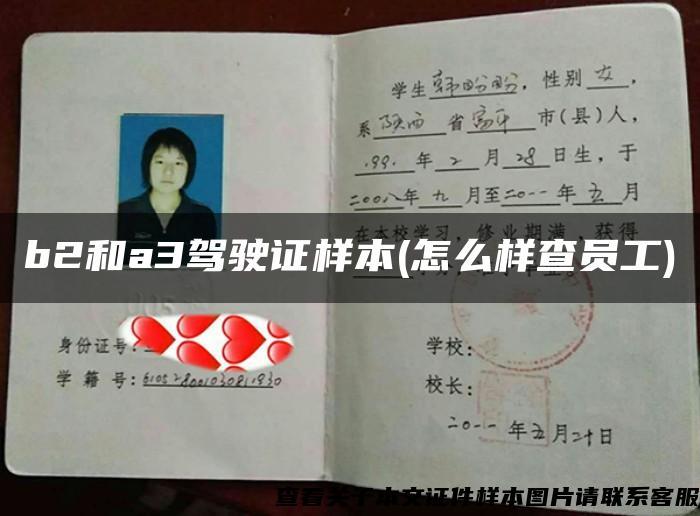 学生韩盼盼，性别女，
系陕西省富平市(县)人，
1991年2月28日生，于
二00八年九月至二0一一年五月
在本校学习，修业期满，获得
b2和a3驾驶证样本(怎么样查员工)
身份证号：
学籍号：
学校：
校长：
二0一一年五月二十日
查看关于本文证件样本图片请联系客服